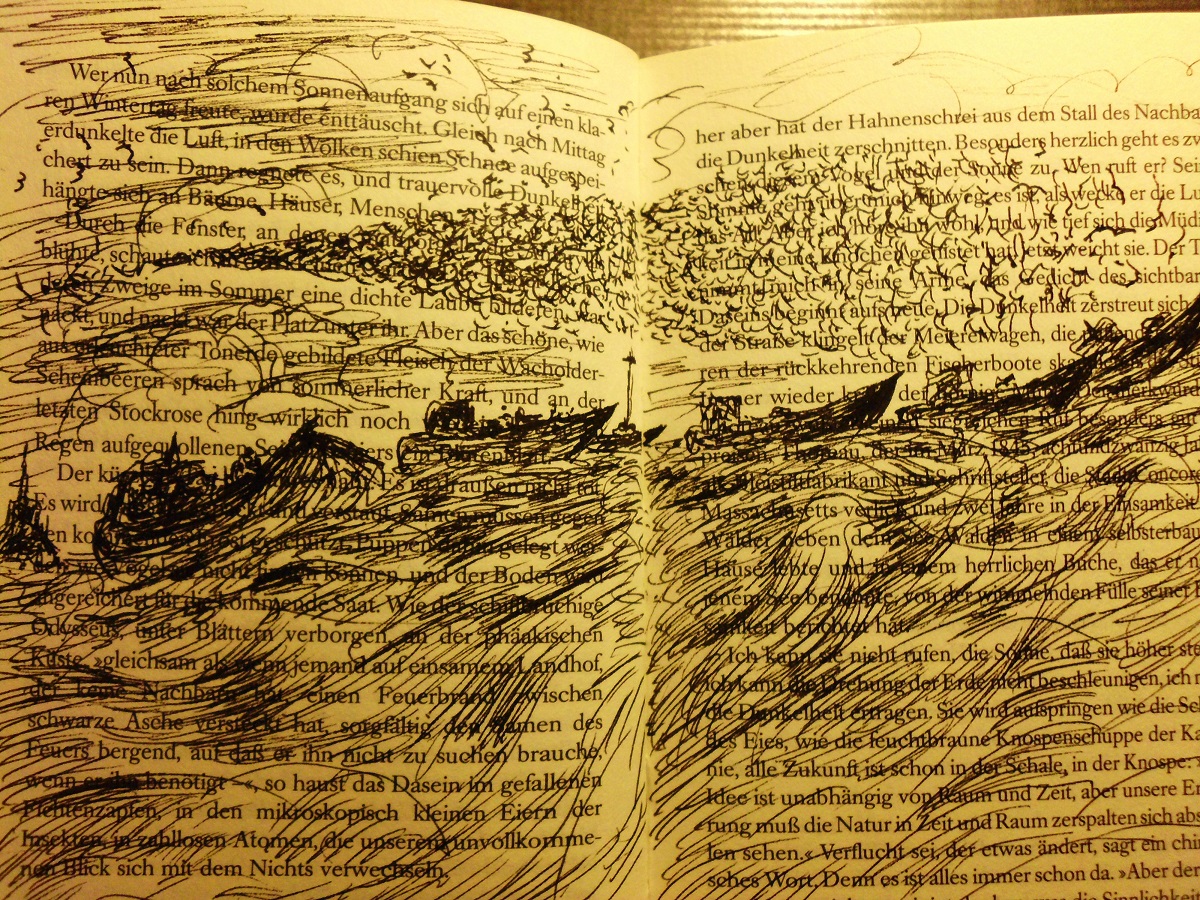 Wer nun nach solchem Sonnenaufgang sich auf einen kla-
ren Wintertag freute, wurde enttäuscht. Gleich nach Mittag
erdunkelte die Luft, in den Wolken schien Schnee aufgespei-
chert zu sein. Dann regnete es, und trauervolle Dunkelheit
hängte sich an Bäume, Häuser, Menschen
Durch die Fenster, an denen
blühte, schaute
deren Zweige im Sommer eine dichte Laube bilderen, war
nackt, und nackt war der Platz unter ihr. Aber das schöne, wie
aus erleuchteter Tonerde gebildete Fleisch der Wacholder-
Scheinbeeren sprach von sommerlicher Kraft, und an der
letzten Stockrose hing wirklich noch
Regen aufgequollenen ein Blütenblatt.
Der Es ist draußen nicht tot.
Es wird und verstaut. Samen müssen gegen
den kommenden Frost geschützt, Puppen dahin gelegt wer-
den, wo Vögel sie nicht finden können, und der Boden wird
angereichert für die kommende Saat. Wie der schiffbrüchige
Odysseus, unter Blättern verborgen, an der phäakischen
Küste, »gleichsam als wenn jemand auf einsamem Landhof,
der keine Nachbarn hat, einen Feuerbrand zwischen
schwarze Asche versteckt hat, sorgfältig den Samen des
Feuers bergend, auf daß er ihn nicht zu suchen brauche,
wenn er ihn benötigt –«, so haust das Dasein im gefallenen
Fichtenzapfen, in den mikroskopisch kleinen Eiern der
Insekten, in zahllosen Atomen, die unserem unvollkomme-
nen Blick sich mit dem Nichts verwechseln.
her aber hat der Hahnenschrei aus dem Stall des Nachba
die Dunkelheit zerschnitten. Besonders herzlich geht es zw
schen diesem Vogel und der Sonne zu. Wen ruft er? Sei
Stimme geht über mich hinweg, es ist, als wecke er die Lu
das All. Aber ich höre ihn wohl, und wie tief sich die Müd
keit in meine Knochen genistet hat, jetzt weicht sie. Der
nimmt mich in seine Arme, das Gedicht des sichtbar
Daseins beginnt aufs neue. Die Dunkelheit zerstreut sich
der Straße klingelt der Meiereiwagen, die
ren der rückkehrenden Fischerboote
Immer wieder der
siegreichen Ruf besonders gut
preisen. Thoreau, der im März 1845, achtundzwanzig
als Bleistiftfabrikant und Schriftsteller, die Stadt Concor
Massachusetts verließ und zwei Jahre in der Einsamkeit
Wälder neben dem See Walden in einem selbsterbau
Hause lebte und in einem herrlichen Buche, das er n
jenem See benannte, von der wimmelnden Fülle seiner
samkeit berichtet hat.
Ich kann sie nicht rufen, die Sonne, daß sie höher ste
ich kann die Drehung der Erde nicht beschleunigen, ich
die Dunkelheit ertragen. Sie wird aufspringen wie die Sch
des Eies, wie die feuchtbraune Knospenschuppe der Ka
nie, alle Zukunft ist schon in der Schale, in der Knospe:
Idee ist unabhängig von Raum und Zeit, aber unsere Er
rung muß die Natur in Zeit und Raum zerspalten sich abs
len sehen.« Verflucht sei, der etwas ändert, sagt ein chi
sches Wort. Denn es ist alles immer schon da. »Aber der
die Sinnlichkeit